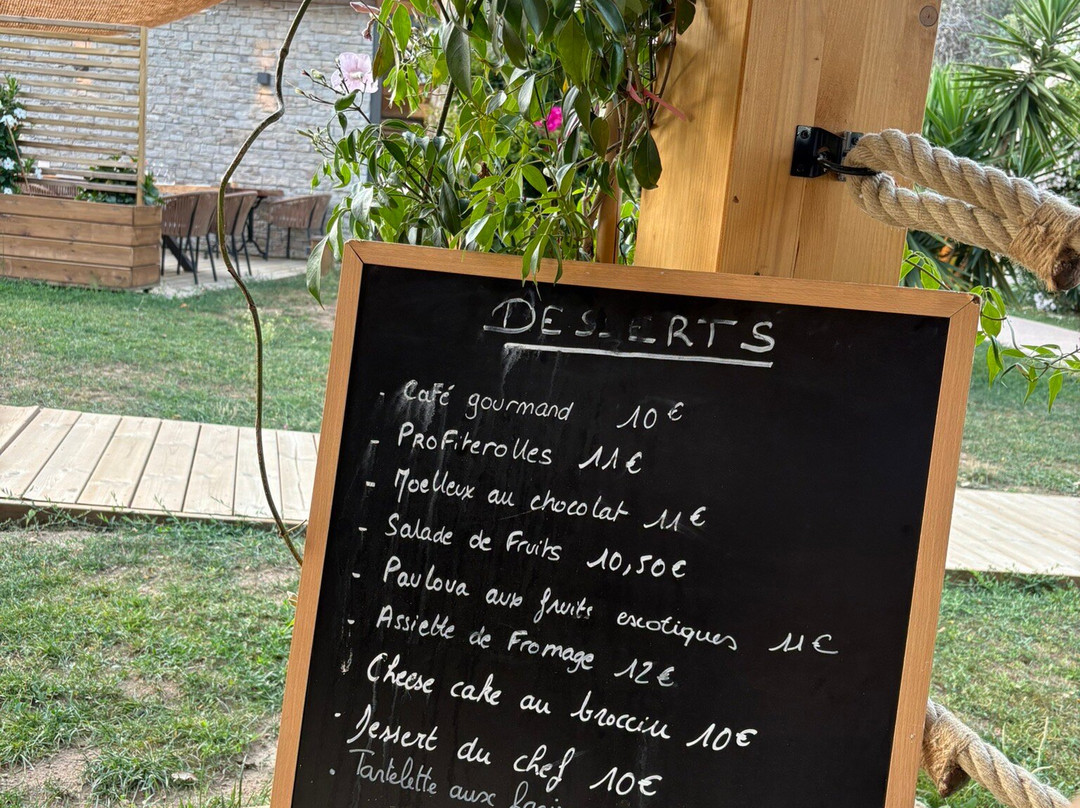 DESSERTS
- Café gourmand 10€
- Profiterolles 11€
- Moelleux au chocolat 11€
- Salade de Fruits 10,50€
- Pavlova aux fruits exotiques 11€
- Assiette de Fromage 12€
Cheese cake au brocciu 10€
. Dessert du chef 10€
. Tartelette aux